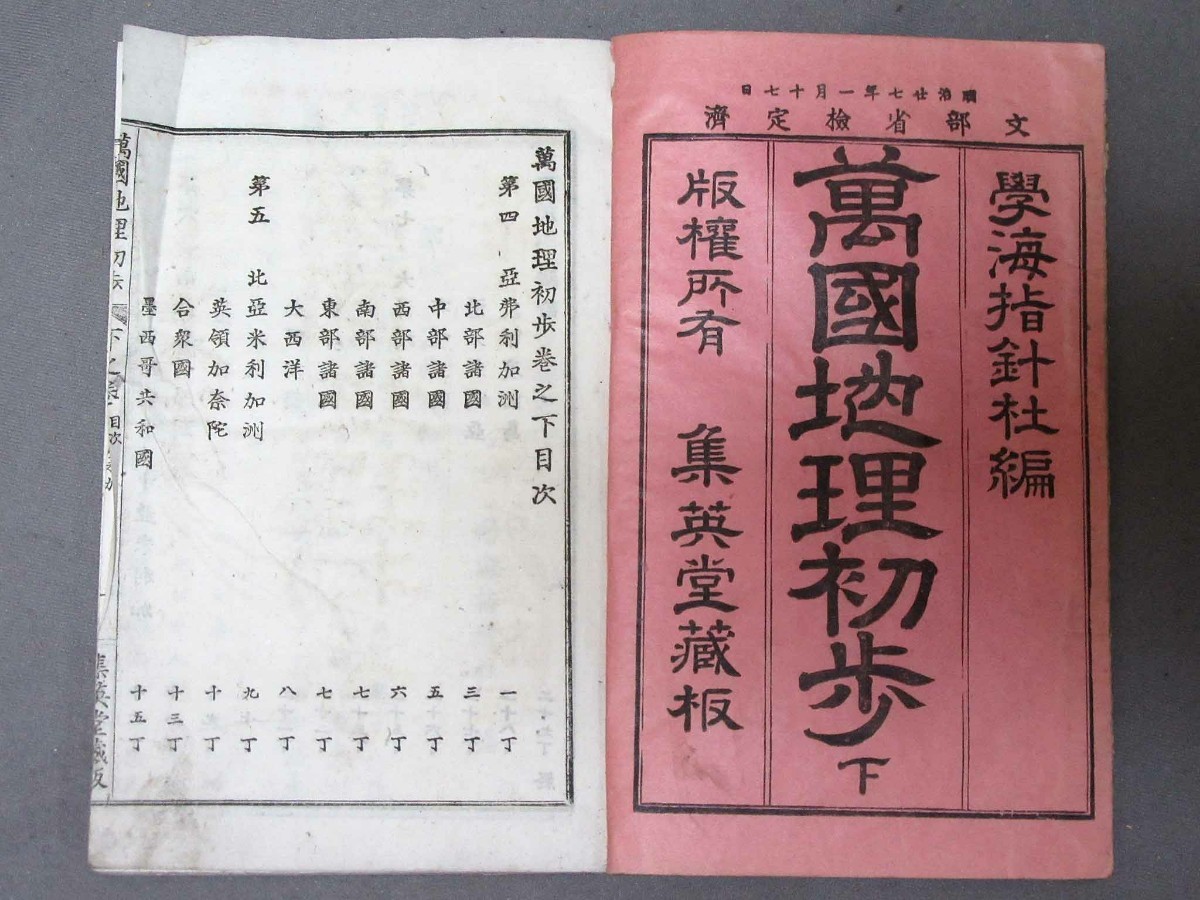 明治廿七年一月十七日
文部省檢定濟
學海指針社編
萬國地理初步 下
版權所有 集英堂藏板
萬國地理初步卷之下目次
第四 亞弗利加洲 一丁
北部諸國 三丁
中部諸國 五丁
西部諸國 六丁
南部諸國 七丁
東部諸國 七丁
大西洋 八丁
第五 北亞米利加洲 九丁
英領加奈陀 十丁
合衆國 十三丁
墨西哥共和國 十五丁
萬國地理初步 下之卷 目次
集英堂藏板